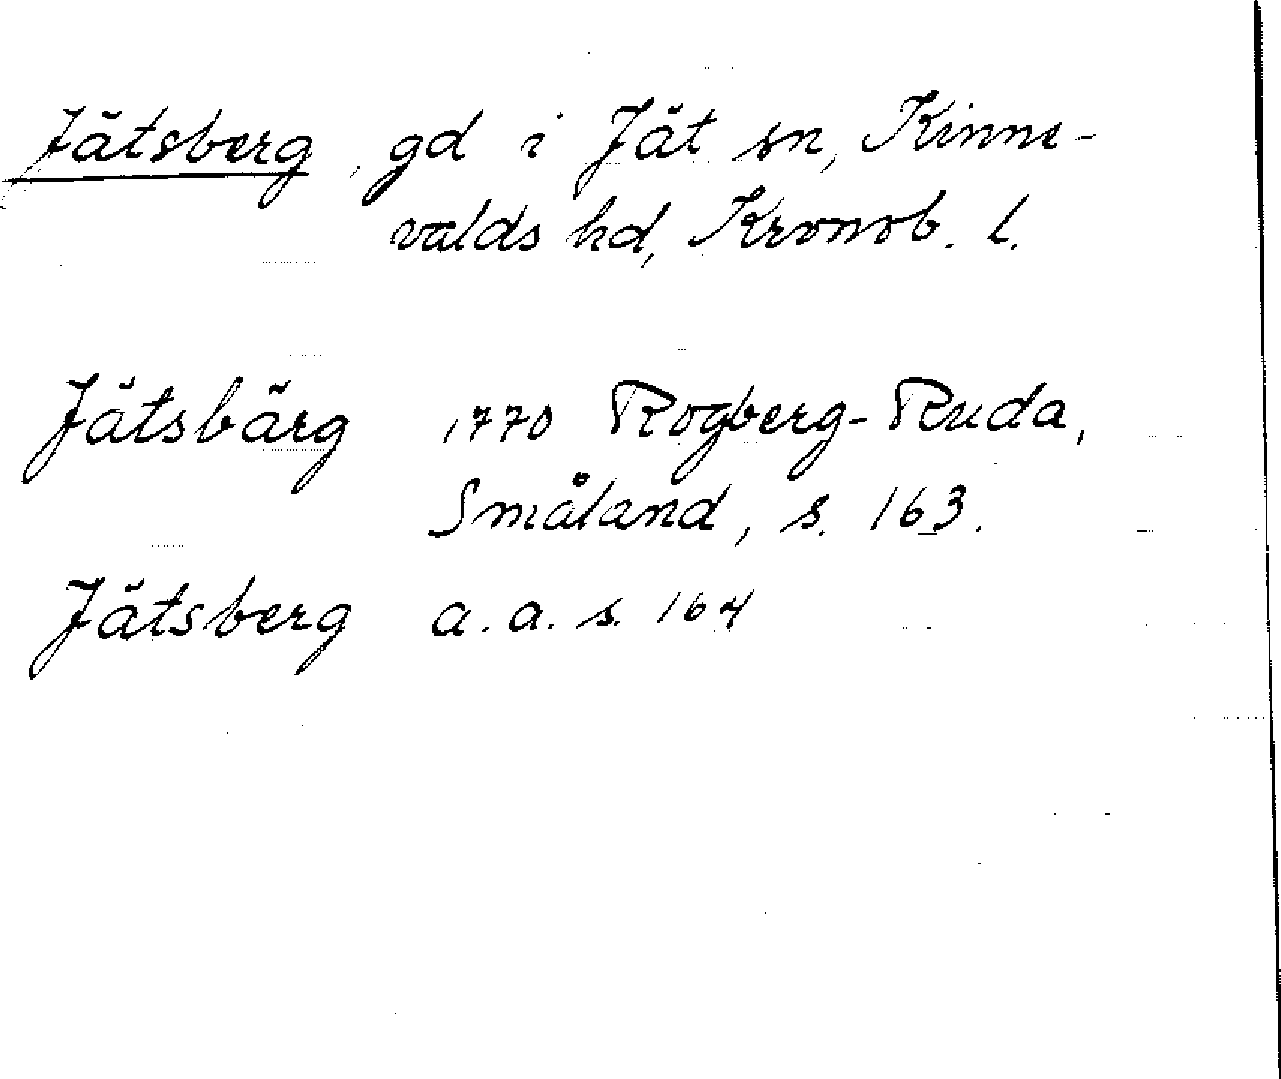 Jätsberg, gd i Jät sn, Kinne-
valds hd, Kronob. l.
Jätsbärg 1770 Rogberg-Ruda,
Småland, s. 163.
Jätsberg a.a. s. 164